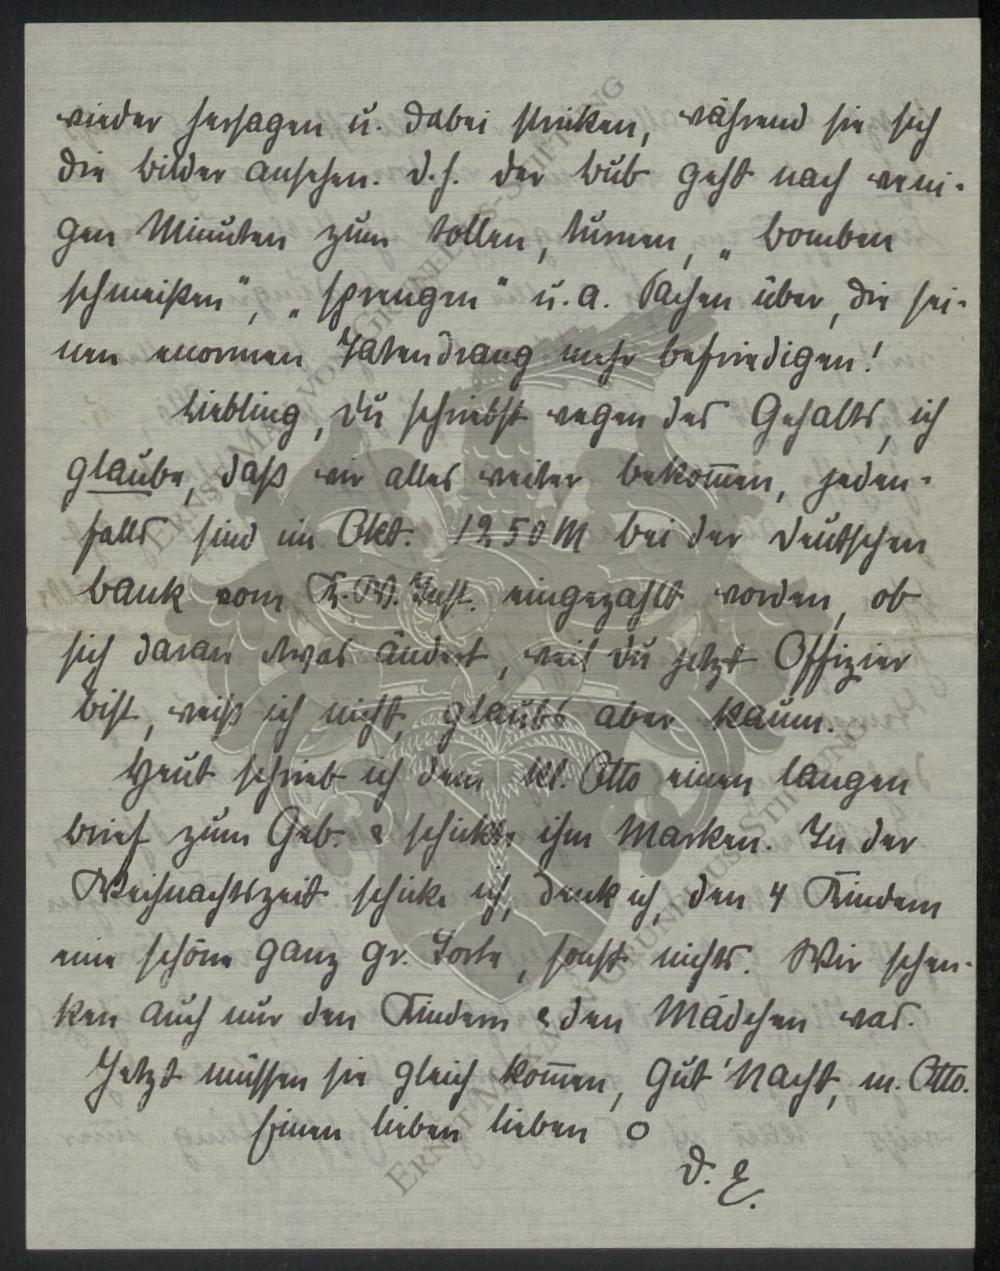 wieder hersagen u. dabei stricken, während sie sich
die Bilder ansehen. D.h. der Bub geht nach weni-
gen Minuten zum tollen, turnen, „bomben
schmeißen", „sprengen" u.a. Sachen über, die sei-
nen enormen Tatendrang mehr befriedigen!
Liebling, Du schriebst wegen des Gehalts, ich
glaube, daß wir alles weiter bekom̅en, jeden-
falls sind im Okt. 1250 M bei der Deutschen
Bank vom K.W. Inst. eingezahlt worden, ob
sich daran etwas ändert, weil Du jetzt Offizier
bist, weiß ich nicht, glaubs aber kaum.
Heut schrieb ich dem kl. Otto einen langen
Brief zum Geb. & schickte ihm Marken. In der
Weihnachtszeit schicke ich, denk ich, den 4 Kindern
eine schöne ganz gr. Torte, sonst nichts. Wir schen-
ken auch nur den Kindern & den Mädchen was.
Jetzt müssen sie gleich kom̅en, gut' Nacht, m. Otto.
Einen lieben lieben O
D. E.
ERNST-MAX-VON-GRUNELIUS-STIFTUNG
ERNST-MAX-VON-GRUNELIUS-STIFTUNG